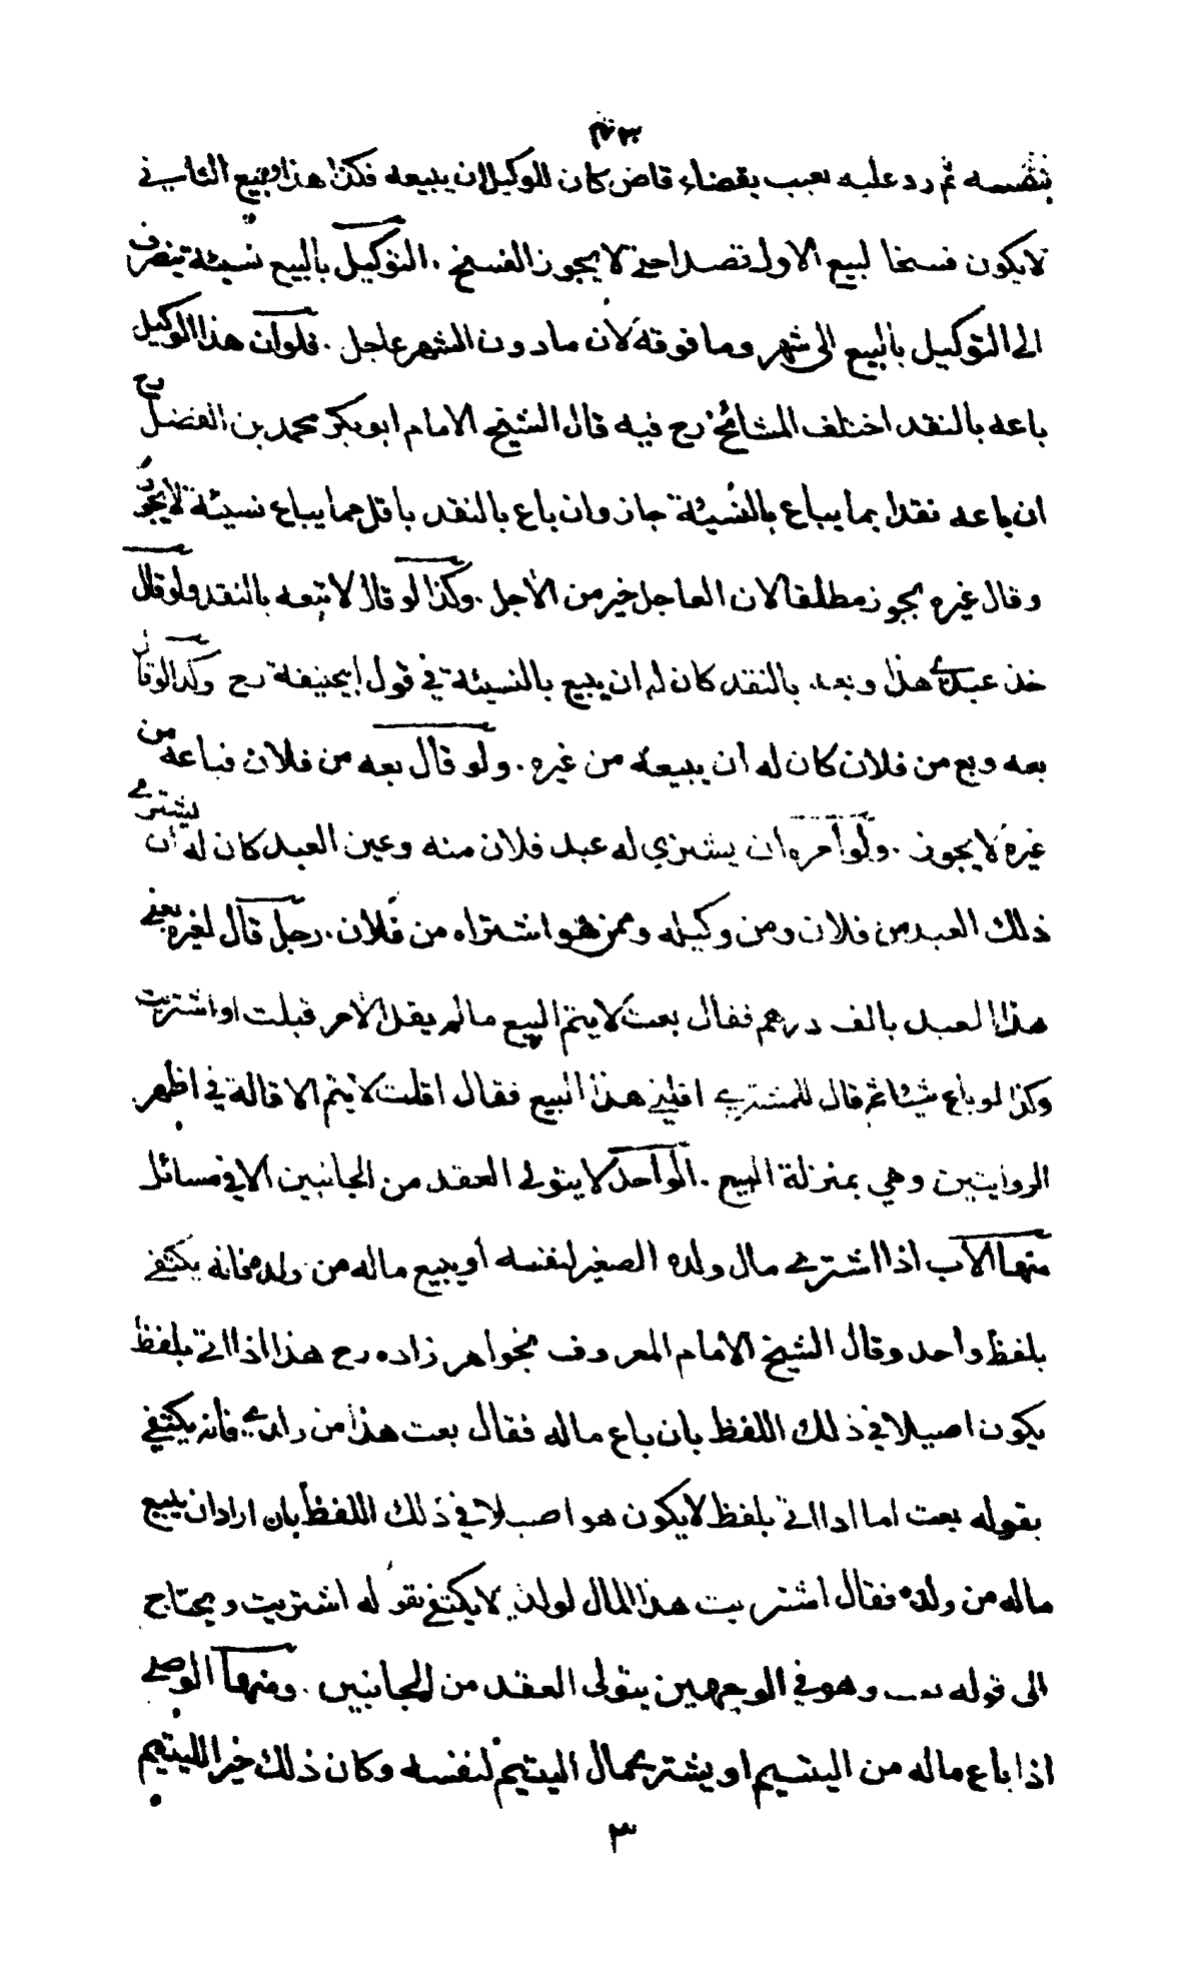 بنفسه ثم رد عليه بعيب بقضاء قاض كان للوكيل ان يبيعه فكذا هذا وبيع الثاني
لا يكون فسخا لبيع الاول تصدا حتى لا يجوز الفسخ . التوكيل بالبيع نسيئة ينصرف
الى التوكيل بالبيع الى شهر وما فوقه لان ما دون الشهر عاجل . فلو ان هذا الوكيل
باعه بالنقد اختلف المشائخ رح فيه قال الشيخ الامام ابو بكر محمد بن الفضل رح
ان باعه نقدا بما يباع بالنسيئة جاز وان باع بالنقد باقل مما يباع نسيئة لا يجوز
وقال غيره يجوز مطلقا لان العاجل خير من الآجل . وكذا لو قال لا تبعه بالنقد ولو قال
خذ عبدي هذا وبعه بالنقد كان له ان يبيع بالنسيئة في قول ابي حنيفة رح وكذا لو قال
بعه وبع من فلان كان له ان يبيعه من غيره . ولو قال بعه من فلان فباعه من
غيره لا يجوز . ولو أمره ان يشتري له عبد فلان منه وعين العبد كان له ان يشتري
ذلك العبد من فلان ومن وكيله وممن هو اشتراه من فلان . رجل قال لغيره بعني
هذا العبد بالف درهم فقال بعت لا يتم البيع ما لم يقل الآمر قبلت او اشتريت
وكذا لو باع شيئا ثم قال للمشتري اقلني هذا البيع فقال اقلت لا يتم الاقالة في اظهر
الروايتين وهي بمنزلة البيع . الواحد لا يتولى العقد من الجانبين الا في مسائل
منها الاب اذا اشترى مال ولده الصغير لنفسه أو يبيع ماله من ولده فانه يكتفي
بلفظ واحد وقال الشيخ الامام المعروف بخواهر زاده رح هذا اذا اتى بلفظ
يكون اصيلا في ذلك اللفظ بان باع ماله فقال بعت هذا من ولدي فانه يكتفي
بقوله بعت اما اذا اتى بلفظ لا يكون هو اصيلا في ذلك اللفظ بان اراد ان يبيع
ماله من ولده فقال اشتريت هذا المال لولدي لا يكتفي بقوله اشتريت ويحتاج
الى قوله بعت وهو في الوجهين يتولى العقد من الجانبين . ومنها الوصي
اذا باع ماله من اليتيم او يشتري مال اليتيم لنفسه وكان ذلك خيرا لليتيم
٣